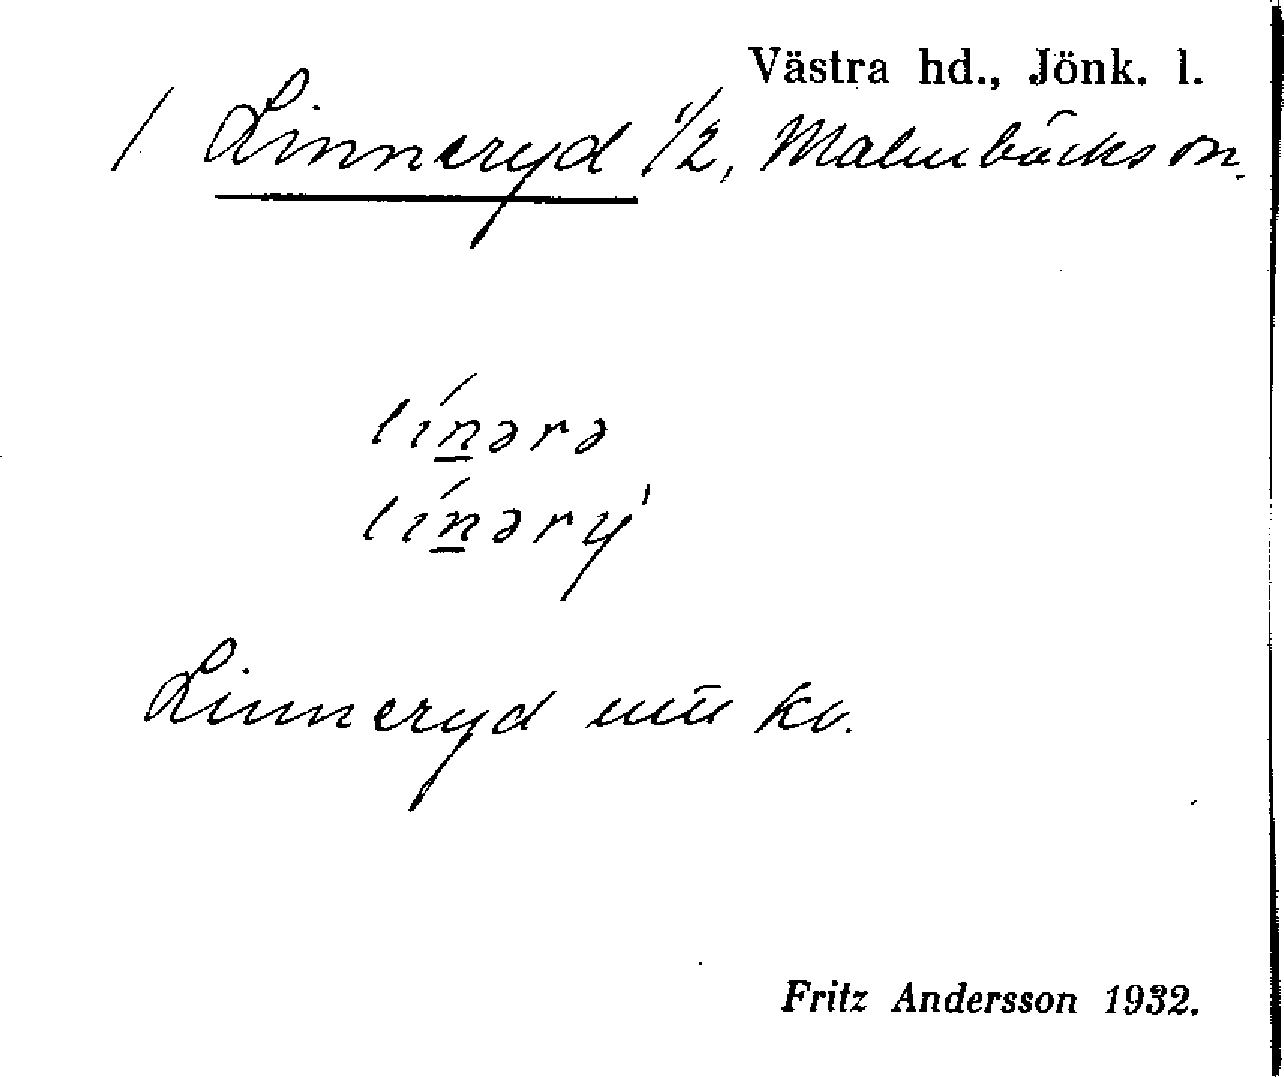 Västra hd., Jönk. l.
/ Linneryd 1/2, Malmbäcks sn.
lín̲ərə
lín̲ərý
Linneryd kv.
Fritz Andersson 1932.